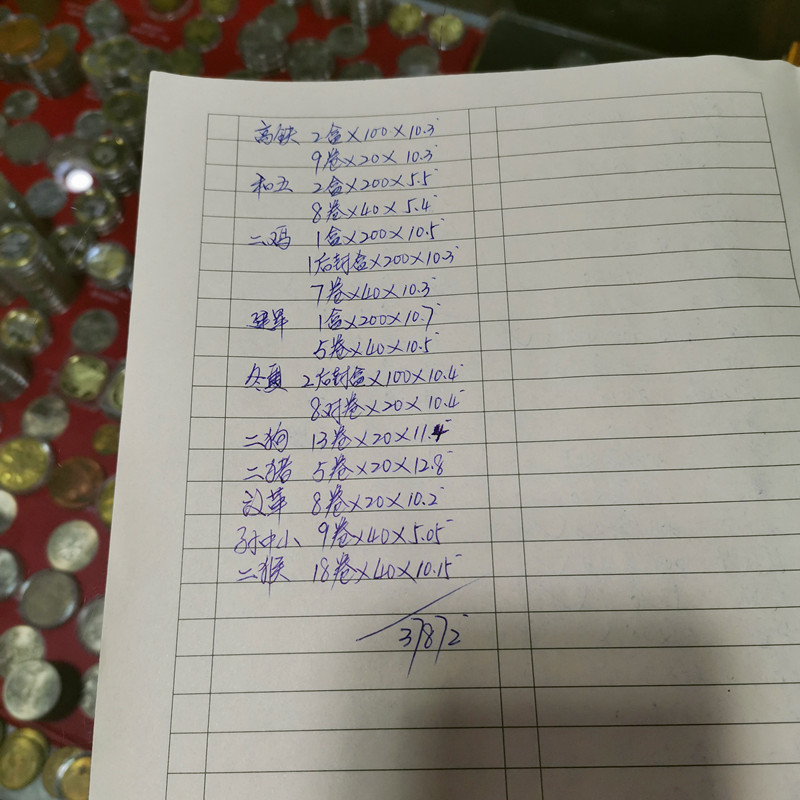 高铁 2盒×100×10.3
9卷×20×10.3
和五 2盒×200×5.5
8卷×40×5.4
二鸡 1盒×200×10.5
1后封盒×200×10.3
7卷×40×10.3
建军 1盒×200×10.7
5卷×40×10.5
冬奥 2后封盒×100×10.4
8对卷×20×10.4
二狗 13卷×20×11.4
二猪 5卷×20×12.8
改革 8卷×20×10.2
孙中山 9卷×40×5.05
二猴 18卷×40×10.15
37872